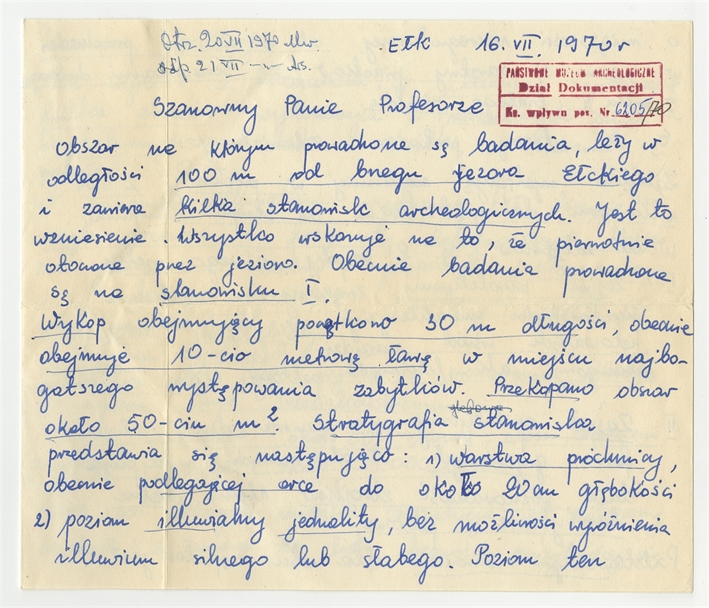 Otrz. 20 VII 1970
odp 21 VII
Ełk 16. VII. 1970 r
PAŃSTWOWE MUZEUM ARCHEOLOGICZNE
Dział Dokumentacji
Ks. wpływu poz. Nr. 6205/70
Szanowny Panie Profesorze
Obszar na którym prowadzone są badania, leży w
odległości 100 m od brzegu jeziora Ełckiego
i zawiera kilka stanowisk archeologicznych. Jest to
wzniesienie. Wszystko wskazuje na to, że pierwotnie
otoczone przez jezioro. Obecnie badania prowadzone
są na stanowisku I.
Wykop obejmujący początkowo 30 m długości, obecnie
obejmuje 10-cio metrową ławę w miejscu najbo-
gatszego występowania zabytków. Przekopano obszar
około 50-ciu m2 Stratygrafia stanowiska
przedstawia się następująco: 1) warstwa próchnicy,
obecnie podlegającej orce do około 20 cm głębokości
2) poziom illuwialny jednolity, bez możliwości wyróżnienia
illuwium silnego lub słabego. Poziom ten